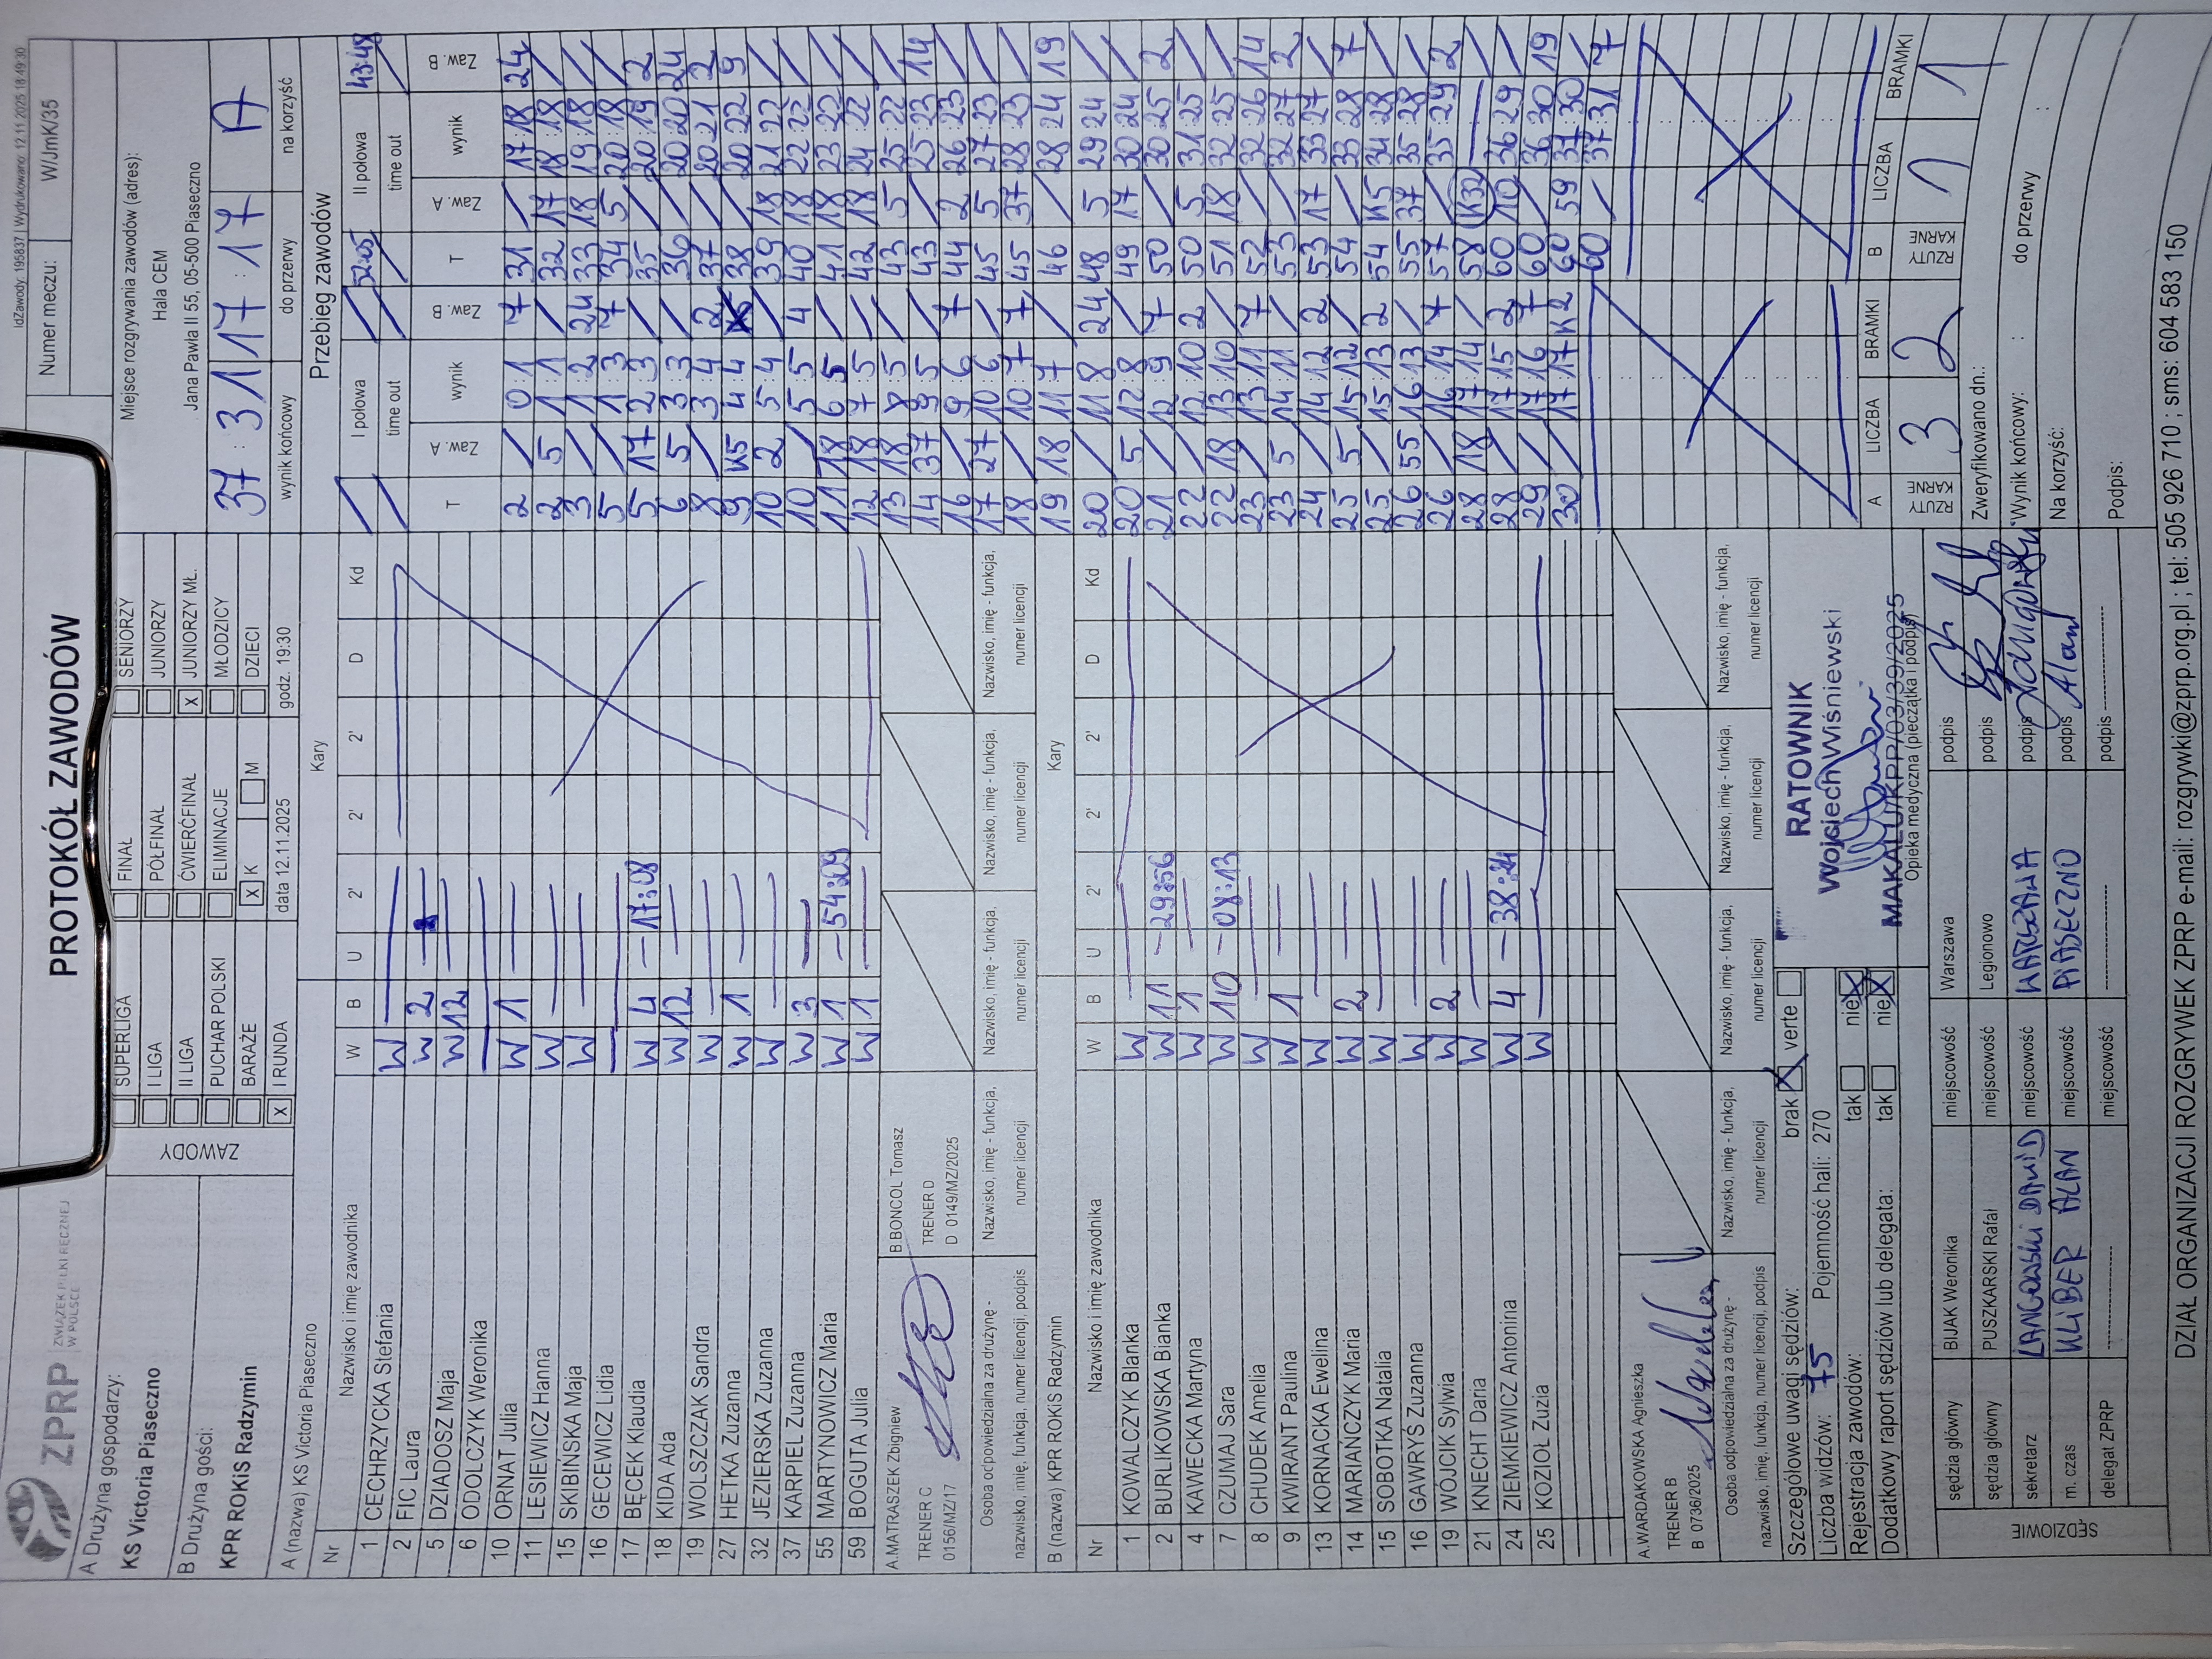 IdZawody: 195837 | Wydrukowano: 12.11.2025 18:49:30
ZPRP ZWIĄZEK PIŁKI RĘCZNEJ W POLSCE
PROTOKÓŁ ZAWODÓW
Numer meczu: W/JmK/35
A Drużyna gospodarzy:
KS Victoria Piaseczno
B Drużyna gości:
KPR ROKiS Radzymin
ZAWODY
SUPERLIGA
I LIGA
II LIGA
PUCHAR POLSKI
BARAŻE
X I RUNDA
FINAŁ
PÓŁFINAŁ
ĆWIERĆFINAŁ
ELIMINACJE
X K M
data 12.11.2025
SENIORZY
JUNIORZY
X JUNIORZY MŁ.
MŁODZICY
DZIECI
godz. 19:30
Miejsce rozgrywania zawodów (adres):
Hala CEM
Jana Pawła II 55, 05-500 Piaseczno
37 : 31 17 : 17 A
wynik końcowy do przerwy na korzyść
A (nazwa) KS Victoria Piaseczno
Kary
Nr Nazwisko i imię zawodnika W B U 2' 2' 2' D Kd
1 CECHRZYCKA Stefania W
2 FIC Laura W 2
5 DZIADOSZ Maja W 12
6 ODOLCZYK Weronika
10 ORNAT Julia W 1
11 LESIEWICZ Hanna W
15 SKIBIŃSKA Maja W
16 GECEWICZ Lidia
17 BĘCEK Klaudia W 4 17:08
18 KIDA Ada W 12
19 WOLSZCZAK Sandra W
27 HETKA Zuzanna W 1
32 JEZIERSKA Zuzanna W
37 KARPIEL Zuzanna W 3
55 MARTYNOWICZ Maria W 1 54:09
59 BOGUTA Julia W 1
A.MATRASZEK Zbigniew
TRENER C
0156/MZ/17
B.BONCOL Tomasz
TRENER D
D 0149/MZ/2025
Osoba odpowiedzialna za drużynę -
nazwisko, imię, funkcja, numer licencji, podpis
Nazwisko, imię - funkcja,
numer licencji
Nazwisko, imię - funkcja,
numer licencji
Nazwisko, imię - funkcja,
numer licencji
Nazwisko, imię - funkcja,
numer licencji
B (nazwa) KPR ROKiS Radzymin
Kary
Nr Nazwisko i imię zawodnika W B U 2' 2' 2' D Kd
1 KOWALCZYK Blanka W
2 BURLIKOWSKA Bianka W 11 29:56
4 KAWECKA Martyna W 1
7 CZUMAJ Sara W 10 08:13
8 CHUDEK Amelia W
9 KWIRANT Paulina W 1
13 KORNACKA Ewelina W
14 MARIAŃCZYK Maria W 2
15 SOBOTKA Natalia W
16 GAWRYŚ Zuzanna W
19 WÓJCIK Sylwia W 2
21 KNECHT Daria W
24 ZIEMKIEWICZ Antonina W 4 38:24
25 KOZIOŁ Zuzia W
A.WARDAKOWSKA Agnieszka
TRENER B
B 0736/2025
Osoba odpowiedzialna za drużynę -
nazwisko, imię, funkcja, numer licencji, podpis
Nazwisko, imię - funkcja,
numer licencji
Nazwisko, imię - funkcja,
numer licencji
Nazwisko, imię - funkcja,
numer licencji
Nazwisko, imię - funkcja,
numer licencji
Przebieg zawodów
I połowa II połowa
time out 52:05 time out 43:48
T Zaw. A wynik Zaw. B T Zaw. A wynik Zaw. B
2 / 0:1 7 31 / 17:18 24
2 5 1:1 / 32 17 18:18 /
3 / 1:2 24 33 18 19:18 /
5 / 1:3 7 34 5 20:18 /
5 17 2:3 / 35 / 20:19 2
6 5 3:3 / 36 / 20:20 24
8 / 3:4 2 37 / 20:21 2
9 K5 4:4 38 / 20:22 9
10 2 5:4 / 39 18 21:22 /
10 / 5:5 4 40 18 22:22 /
11 18 6:5 / 41 18 23:22 /
12 18 7:5 / 42 18 24:22 /
13 18 8:5 / 43 5 25:22 /
14 37 9:5 / 43 / 25:23 14
16 / 9:6 7 44 2 26:23 /
17 27 10:6 / 45 5 27:23 /
18 / 10:7 7 45 37 28:23 /
19 18 11:7 / 46 / 28:24 19
20 / 11:8 24 48 5 29:24 /
20 5 12:8 / 49 17 30:24 /
21 / 12:9 7 50 / 30:25 2
22 / 12:10 2 50 5 31:25 /
22 18 13:10 / 51 18 32:25 /
23 / 13:11 7 52 / 32:26 14
23 5 14:11 / 53 / 32:27 2
24 / 14:12 2 53 17 33:27 /
25 5 15:12 / 54 / 33:28 7
25 / 15:13 2 54 K5 34:28 /
26 55 16:13 / 55 37 35:28 /
26 / 16:14 7 57 / 35:29 2
28 18 17:14 / 58 K32
28 / 17:15 2 60 10 36:29 /
29 / 17:16 7 60 / 36:30 19
30 / 17:17 K2 60 59 37:30 /
60 / 37:31 7
A LICZBA BRAMKI B LICZBA BRAMKI
RZUTY KARNE 3 2 RZUTY KARNE 1 1
Szczegółowe uwagi sędziów: brak X verte
Liczba widzów: 75 Pojemność hali: 270
Rejestracja zawodów: tak nie X
Dodatkowy raport sędziów lub delegata: tak nie X
RATOWNIK
Wojciech Wiśniewski
MAKALU/KPP/03/39/2025
Opieka medyczna (pieczątka i podpis)
SĘDZIOWIE
sędzia główny BIJAK Weronika miejscowość Warszawa podpis
sędzia główny PUSZKARSKI Rafał miejscowość Legionowo podpis
sekretarz LANGOWSKI DAWID miejscowość WARSZAWA podpis
m. czas KLIBER ALAN miejscowość PIASECZNO podpis Alan
delegat ZPRP miejscowość podpis
Zweryfikowano dn.:
Wynik końcowy: : do przerwy :
Na korzyść:
Podpis:
DZIAŁ ORGANIZACJI ROZGRYWEK ZPRP e-mail: rozgrywki@zprp.org.pl ; tel.: 505 926 710 ; sms: 604 583 150